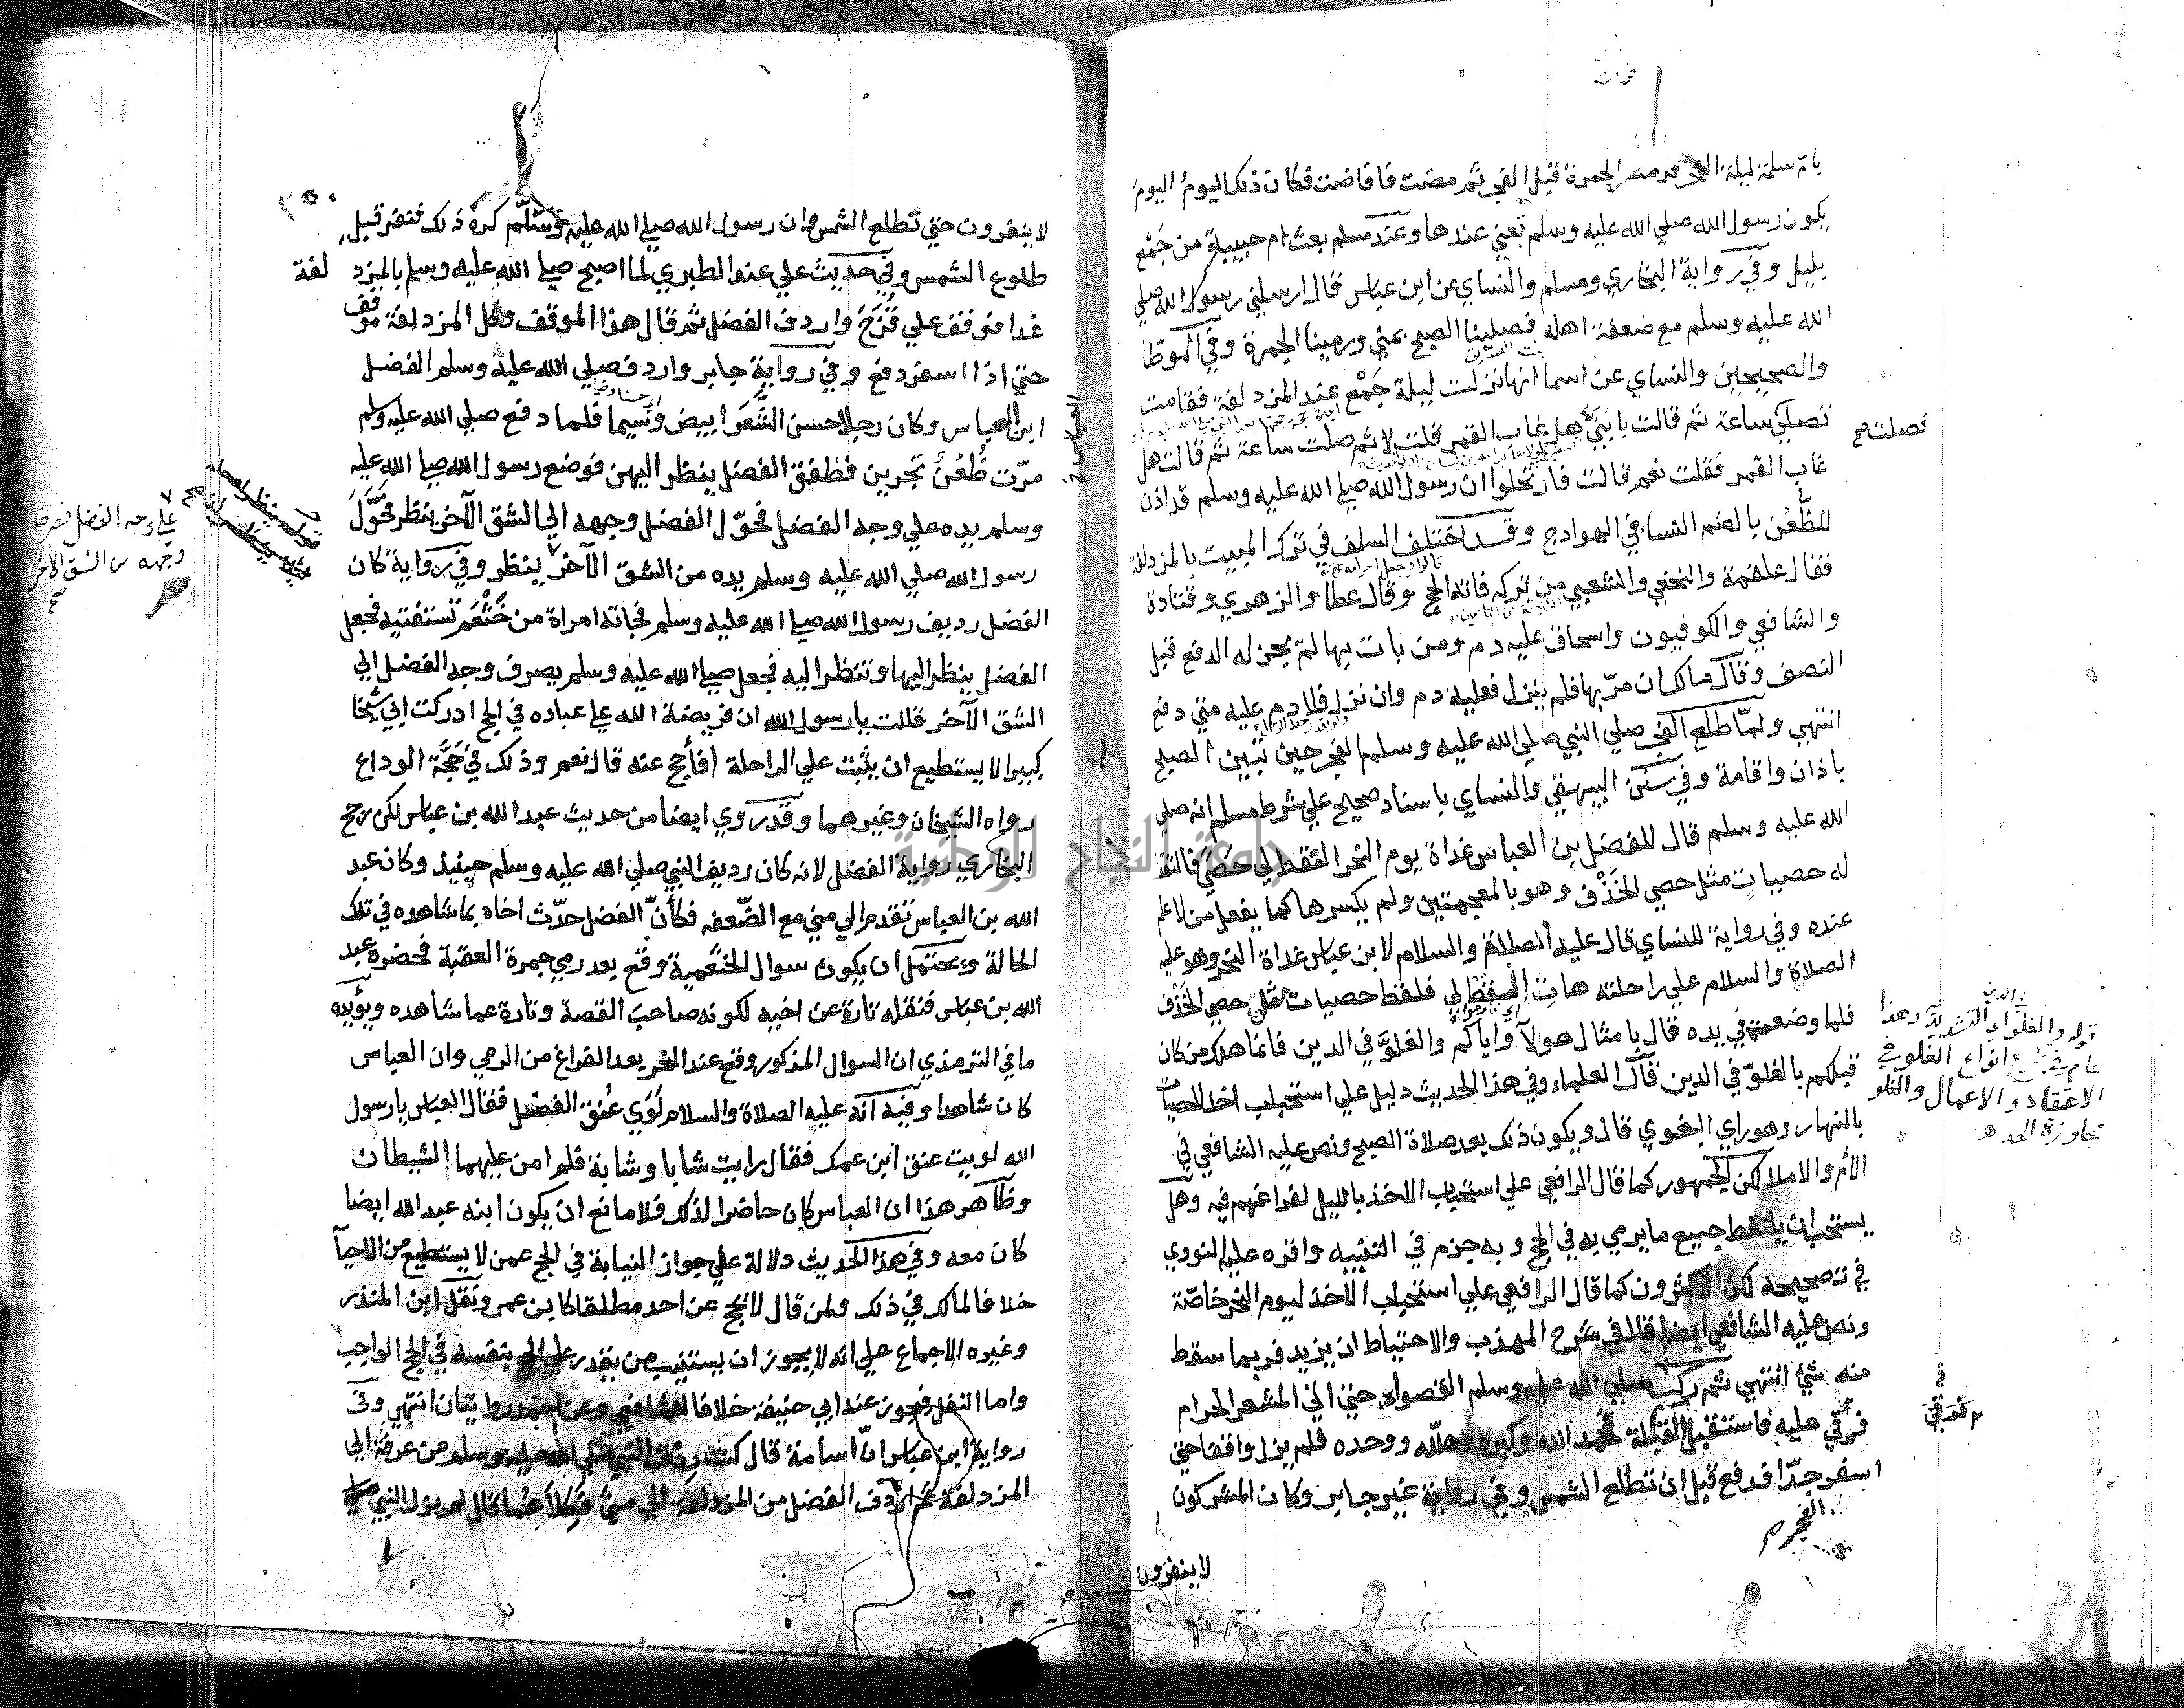 بام سلمة ليلة النحر فرمت الجمرة قبل الفجر ثم مضت فافاضت فكان ذلك اليوم اليوم
يكون رسول الله صلي الله عليه وسلم تعني عندها وعند مسلم بعث ام حبيبة من جَمْع
بليل وفي رواية البخاري ومسلم والنساي عن ابن عباس قال ارسلني رسول الله صلي
الله عليه وسلم مع ضعفة اهله فصلينا الصبح بمني ورمينا الجمرة وفي الموطا
والصحيحين والنساي عن اسما انها نزلت ليلة جَمْع عند المزدلفة فقامت
تصلي ساعة ثم قالت يا بُنَيّ هل غاب القمر قلت لا ثم صلت ساعة ثم قالت هل
فصلت صح
غاب القمر فقلت نعم قالت فارتحلوا ان رسول الله صلي الله عليه وسلم قد اذن
للظُّعُن بالضم النساء في الهوادج وقد اختلف السلف في ترك المبيت بالمزدلفة
فقال علقمة والنخعي والشعبي من تركه فاته الحج وقال عطا والزهري وقتادة
والشافعي والكوفيون واسحاق عليه دم ومن بات بها لم يجز له الدفع قبل
النصف وقال مالك ان مرّ بها فلم ينزل فعليه دم وان نزل فلا دم عليه متي دفع
انتهي ولمّا طلع الفجر صلي النبي صلي الله عليه وسلم الفجر حين تبين الصبح
باذان واقامة وفي سنن البيهقي والنساي باسناد صحيح علي شرط مسلم انه صلي
الله عليه وسلم قال للفضل بن العباس غداة يوم النحر التقط لي حصي فالتقط
له حصيات مثل حصي الخَذْف وهو بالمعجمتين ولم يكسرها كما يفعل من لا علم
عنده وفي رواية للنساي قال عليه الصلاة والسلام لابن عباس غداة النحر وهو عليه
الصلاة والسلام علي راحلته هات القط لي فلقط حصيات مثل حصي الخَذْف
فلما وضعهن في يده قال بامثال هولآ واياكم والغلوَّ في الدين فانما هلك من كان
قبلكم بالغلوّ في الدين قال العلماء وفي هذا الحديث دليل علي استحباب اخذ الحصيات
بالنهار وهو راي البغوي قال ويكون ذلك بعد صلاة الصبح ونص عليه الشافعي في
الأم والاملا لكن الجمهور كما قال الرافعي علي استحباب الاخذ بالليل لفراغهم فيه وهل
يستحب ان يلتقط جميع ما يرمي به في الحج وبه جزم في التنبيه واقره عليه النووي
في تصحيحه لكن الاكثرون كما قال الرافعي علي استحباب الاخذ ليوم النحر خاصّة
ونص عليه الشافعي ايضا قال في شرح المهذب والاحتياط ان يزيد فربما سقط
منه شئ انتهي ثم ركب صلي الله عليه وسلم القصواء حتي اتي المشعر الحرام
فرقي عليه فاستقبل القبلة فحمد الله وكبره وهلله ووحده فلم يزل واقفا حتي
اسفر جدّا فدفع قبل ان تطلع الشمس وفي رواية غير جابر وكان المشركون
الفجر
لا ينفرون
الاعتقاد والاعمال والغلو
مجاوزة الحد
لا ينفرون حتي تطلع الشمس وان رسول الله صلي الله عليه وسلّم كره ذلك فنفر قبل
طلوع الشمس وفي حديث علي عند الطبري لما اصبح صلي الله عليه وسلم بالمزد لفة
غدا فوقف علي قُزَحَ واردف الفضل ثم قال هذا الموقف وكل المزدلفة موقف
حتي اذا اسفر دفع وفي رواية جابر واردف صلي الله عليه وسلم الفضل
ابن العباس وكان رجلا حسن الشَّعَر ابيض وسيما فلما دفع صلي الله عليه وسلم
مرّت ظُعُنٌ تجرين فطفق الفضل ينظر اليهن فوضع رسول الله صلي الله عليه
وسلم يده علي وجه الفضل فحوّل الفضل وجهه الي الشق الآخر ينظر فحَّوَل
رسول الله صلي الله عليه وسلم يده من الشق الآخر ينظر وفي رواية كان
علي وجه الفضل فصرف
وجهه من الشق الآخر
صح
الفضل رديف رسول الله صلي الله عليه وسلم فجاته امراة من خَثْعَم تستفتيه فجعل
الفضل ينظر اليها وتنظر اليه فجعل صلي الله عليه وسلم يصرف وجه الفضل الي
الشق الآخر قالت يا رسول الله ان فريضة الله علي عباده في الحج ادركت ابي شيخا
كبيرا لا يستطيع ان يثبت علي الراحلة افأحج عنه قال نعم وذلك في حَجَّة الوداع
رواه الشيخان وغيرهما وقد روي ايضا من حديث عبد الله بن عباس لكن رجح
البخاري رواية الفضل لانه كان رديف النبي صلي الله عليه وسلم حينيذ وكان عبد
الله بن العباس تقدم الي مني مع الضَّعفة فكأنّ الفضل حدّث اخاه بما شاهده في تلك
الحالة ويحتمل ان يكون سوال الخثعمية وقع بعد رمي جمرة العقبة فحضره عبد
الله بن عباس فنقله تارة عن اخيه لكونه صاحب القصة وتارة عما شاهده ويؤيده
ما في الترمذي ان السوال المذكور وقع عند المنحر بعد الفراغ من الرمي وان العباس
كان شاهدا وفيه انه عليه الصلاة والسلام لَوَي عُنق الفضل فقال العباس يا رسول
الله لويت عنق ابن عمك فقال رايت شابا وشابة فلم امن عليهما الشيطان
وظاهر هذا ان العباس كان حاضرا لذلك فلا مانع ان يكون ابنه عبد الله ايضا
كان معه وفي هذا الحديث دلالة علي جواز النيابة في الحج عمن لا يستطيع من الاحيآ
خلافا لمالك في ذلك ولمن قال لا يحج عن احد مطلقا كابن عمر ونقل ابن المنذر
وغيره الاجماع علي انه لا يجوز ان يستنيب من يقدر علي الحج بنفسه في الحج الواجب
واما النفل فيجوز عند ابي حنيفة خلافا للشافعي وعن احمد روايتان انتهي وفي
رواية ابن عباس انّ أسامة قال كنت رِدْف النبي صلي الله عليه وسلم من عرفة الي
المزدلفة ثم اردف الفضل من المزدلفة الي منيً فكلاهُما قال لم يزل النبي صلي
جامعة النجاح الوطنية